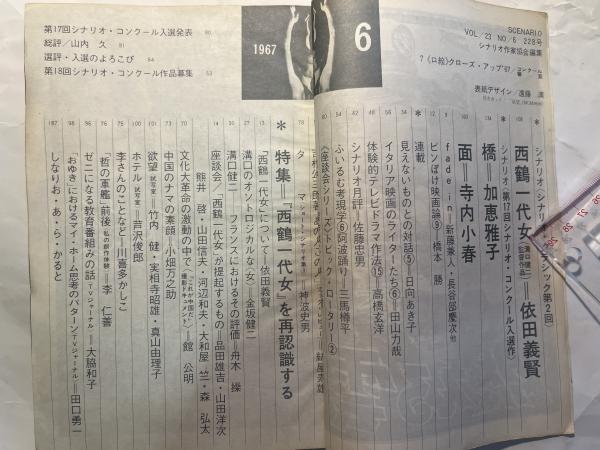 SCENARIO
VOL/23 NO/6 228号
シナリオ作家協会編集
6
1967
表紙デザイン/遠藤 凛
シナリオ〈シナリオ・クラシック第2回〉
108 西鶴一代女〈溝口健二監督作品〉=依田義賢
シナリオ*〈第17回シナリオ・コンクール入選作〉
134 橋=加恵雅子
シナリオ*〈第17回シナリオ・コンクール入選作〉
面=寺内小春
fade・in=新藤兼人・長谷部慶次他
ピンぼけ映画論⑨=橋本 勝
*連載
見えないものとの対話⑤=日向あき子
イタリア映画のライターたち⑥=田山力哉
体験的テレビドラマ作法⑮=高橋玄洋
シナリオ月評=佐藤忠男
ふいるむ考現学⑥阿波踊り=三馬樽平
〈座談会シリーズ〉トピック・ロータリー②
=神波史男
*特集=「西鶴一代女」を再認識する
13 「西鶴一代女」について=依田義賢
17 溝口のオントロジカルな〈女〉=金坂健二
27 溝口健二 フランスにおけるその評価=舟木 操
30 座談会/「西鶴一代女」が提起するもの=品田雄吉・山田洋次
熊井 啓・山田信夫・河辺和夫・大和屋 竺・森 弘太
文化大革命の激動の中で「これが中国だ」撮影ドキュメント=館 公明
中国のナマの素顔=八畑万之助
欲望 試写室=竹内 健・実相寺昭雄・真山由理子
101 ホテル 試写室=芦沢俊郎
75 李さんのことなど=川喜多かしこ
76 「哲の軍艦」前後〈私の創作体験〉=李 仁善
96 ゼニになる教育番組みの話〈TVジャーナル〉=大脇和子
98 「おゆき」におけるマイ・ホーム思考のパターン〈TVジャーナル〉=田口勇一
187 しなりお・あ・ら・かると
第17回シナリオ・コンクール入選発表 80
総評/山内 久 81
選評・入選のよろこび 84
第18回シナリオ・コンクール作品募集 53